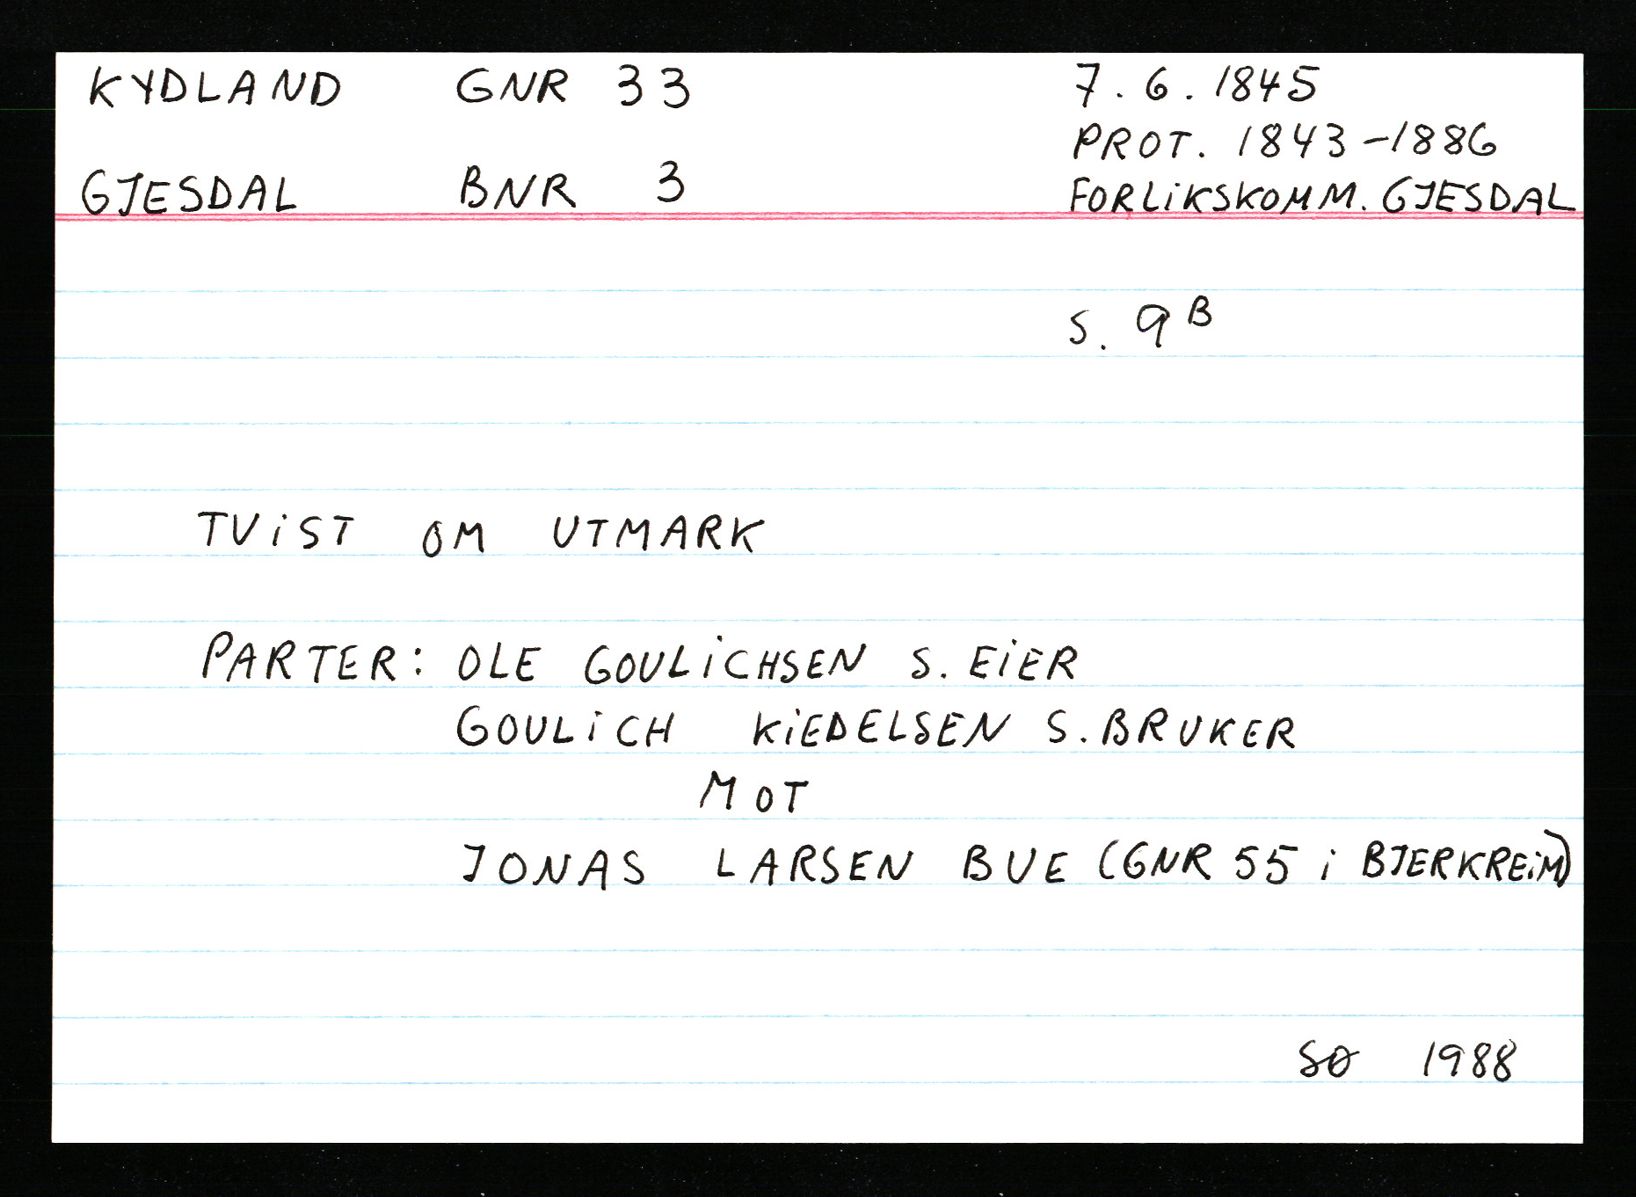 KYDLAND GNR 33 7.6.1845
PROT. 1843-1886
GJESDAL BNR 3 FORLIKSKOMM. GJESDAL
S. 9B
TVIST OM UTMARK
PARTER: OLE GOULICHSEN S. EIER
GOULICH KIEDELSEN S. BRUKER
MOT
JONAS LARSEN BUE (GNR 55 i BJERKREIM)
SØ 1988